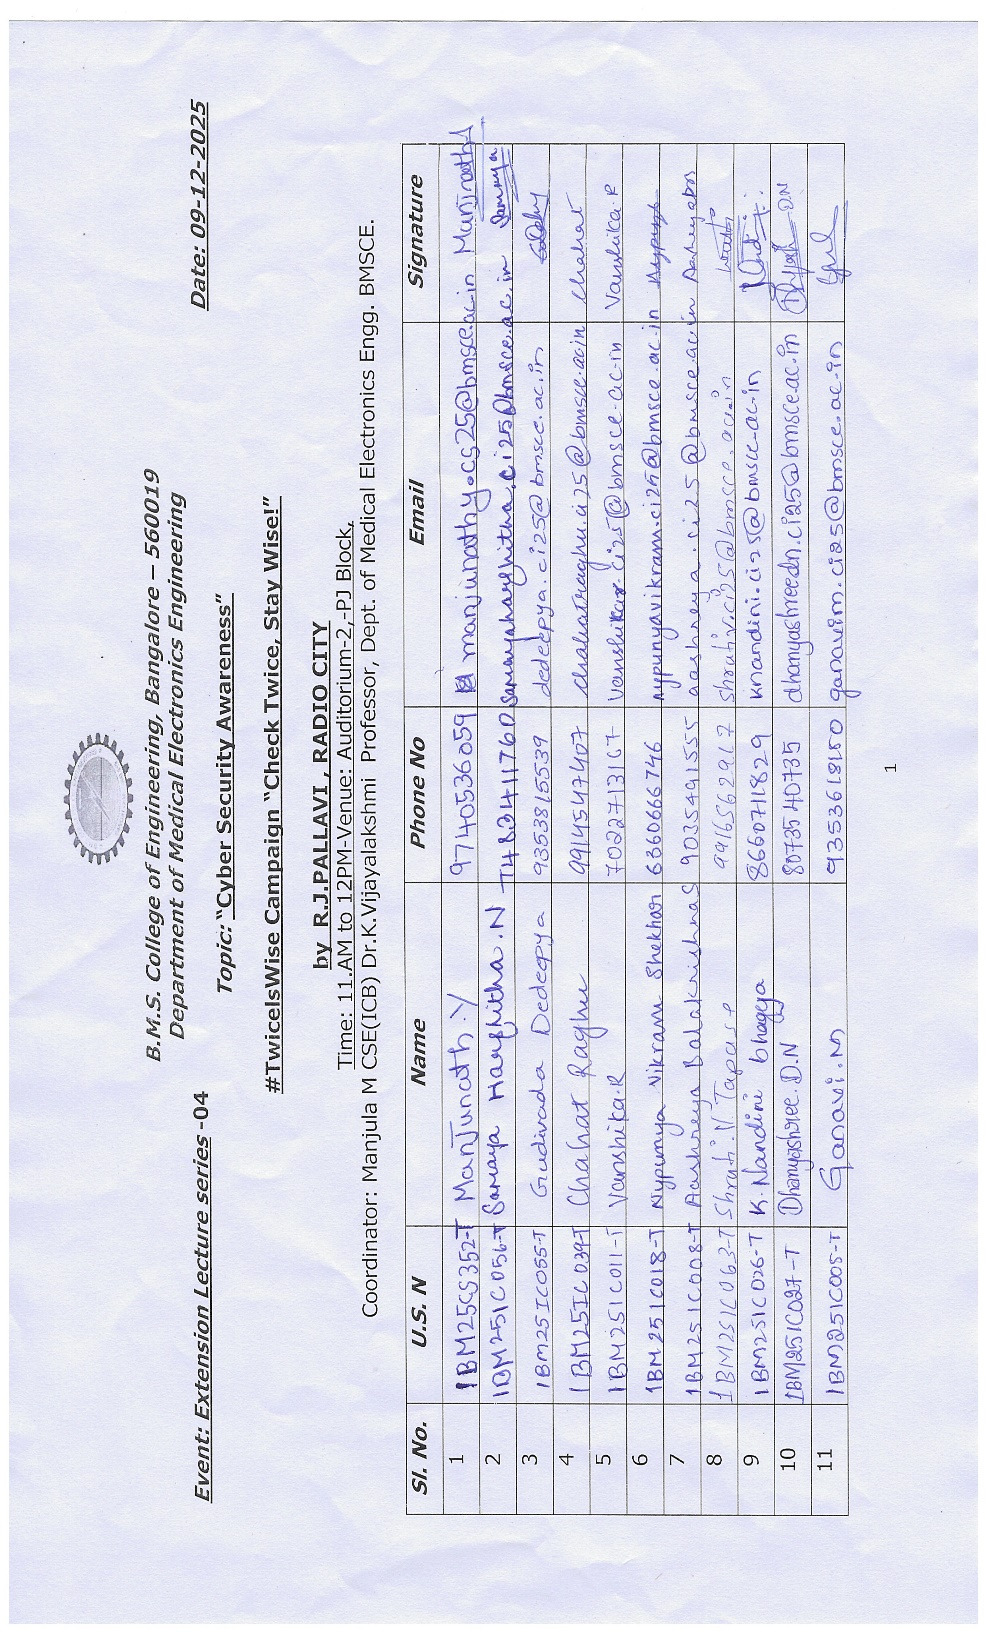 B.M.S. College of Engineering, Bangalore – 560019
Department of Medical Electronics Engineering
Event: Extension Lecture series -04 Date: 09-12-2025
Topic: “Cyber Security Awareness”
#TwiceIsWise Campaign “Check Twice, Stay Wise!”
by R.J.PALLAVI , RADIO CITY
Time: 11.AM to 12PM-Venue: Auditorium-2,-PJ Block,
Coordinator: Manjula M CSE(ICB) Dr.K.Vijayalakshmi Professor, Dept. of Medical Electronics Engg. BMSCE.
Sl. No. U.S. N Name Phone No Email Signature
1 1BM25CS352-T Manjunath.Y 9740536059 manjunathy.cs25@bmsce.ac.in Manjunath
2 1BM25IC056-T Samaya Harshitha.N 7483411760 samayaharshitha.ci25@bmsce.ac.in Samaya
3 1BM25IC055-T Gudivada Dedeepya 9353815539 dedeepya.ci25@bmsce.ac.in
4 1BM25IC039-T Chahat Raghu 9914547407 chahatraghu.ci25@bmsce.ac.in Chahat
5 1BM25IC011-T Vanshika.R 7022713167 Vanshikar.ci25@bmsce.ac.in Vanshika.R
6 1BM25IC018-T Nypunya Vikram Shekhar 6360666746 nypunyavikram.ci25@bmsce.ac.in Nypunya
7 1BM25IC008-T Aashreya Balakrishna S 9035491555 aashreya.ci25@bmsce.ac.in
8 1BM25IC063-T Shruti.N Tapase 9916562917 shrutiv.ci25@bmsce.ac.in
9 1BM25IC026-T K.Nandini bhagya 8660711829 knandini.ci25@bmsce.ac.in
10 1BM25IC027-T Dhanyashree.D.N 8073540735 dhanyashreedn.ci25@bmsce.ac.in D.N
11 1BM25IC005-T Ganavi.M 9353618150 ganavim.ci25@bmsce.ac.in
1